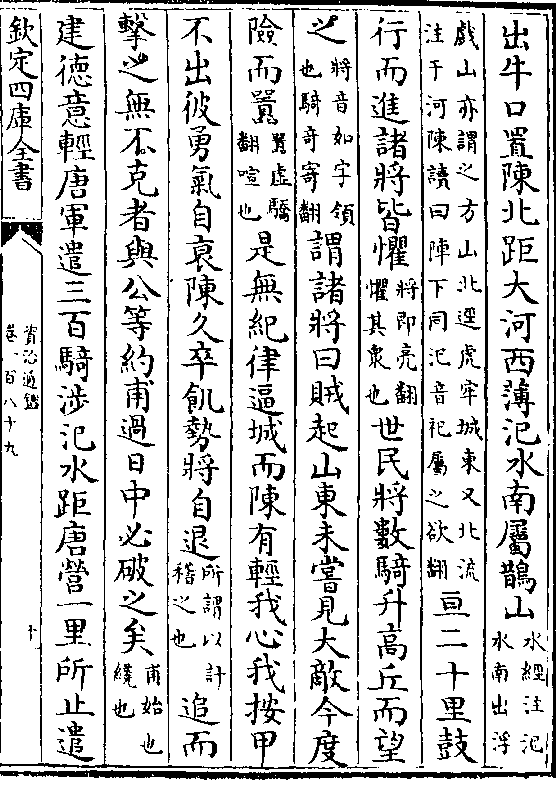 出牛口置陳北距大河西薄汜水南屬鵲山水經注汜水南出浮
戲山亦謂之方山北逕虎牢城東又北流注于河陳讀曰陣下同汜音祀屬之欲翻亘二十里鼓
行而進諸將皆懼將即亮翻懼其衆也世民將數騎升高丘而望
之將音如字領也騎奇寄翻謂諸將曰賊起山東未嘗見大敵今度
險而囂囂虛驕翻喧也是無紀律逼城而陳有輕我心我按甲
不出彼勇氣自衰陳久卒飢勢將自退所謂以計稽之也追而
擊之無不克者與公等約甫過日中必破之矣甫始也纔也
建德意輕唐軍遣三百騎涉汜水距唐營一里所止遣
欽定四庫全書
資治通鑑
卷一百八十九
十